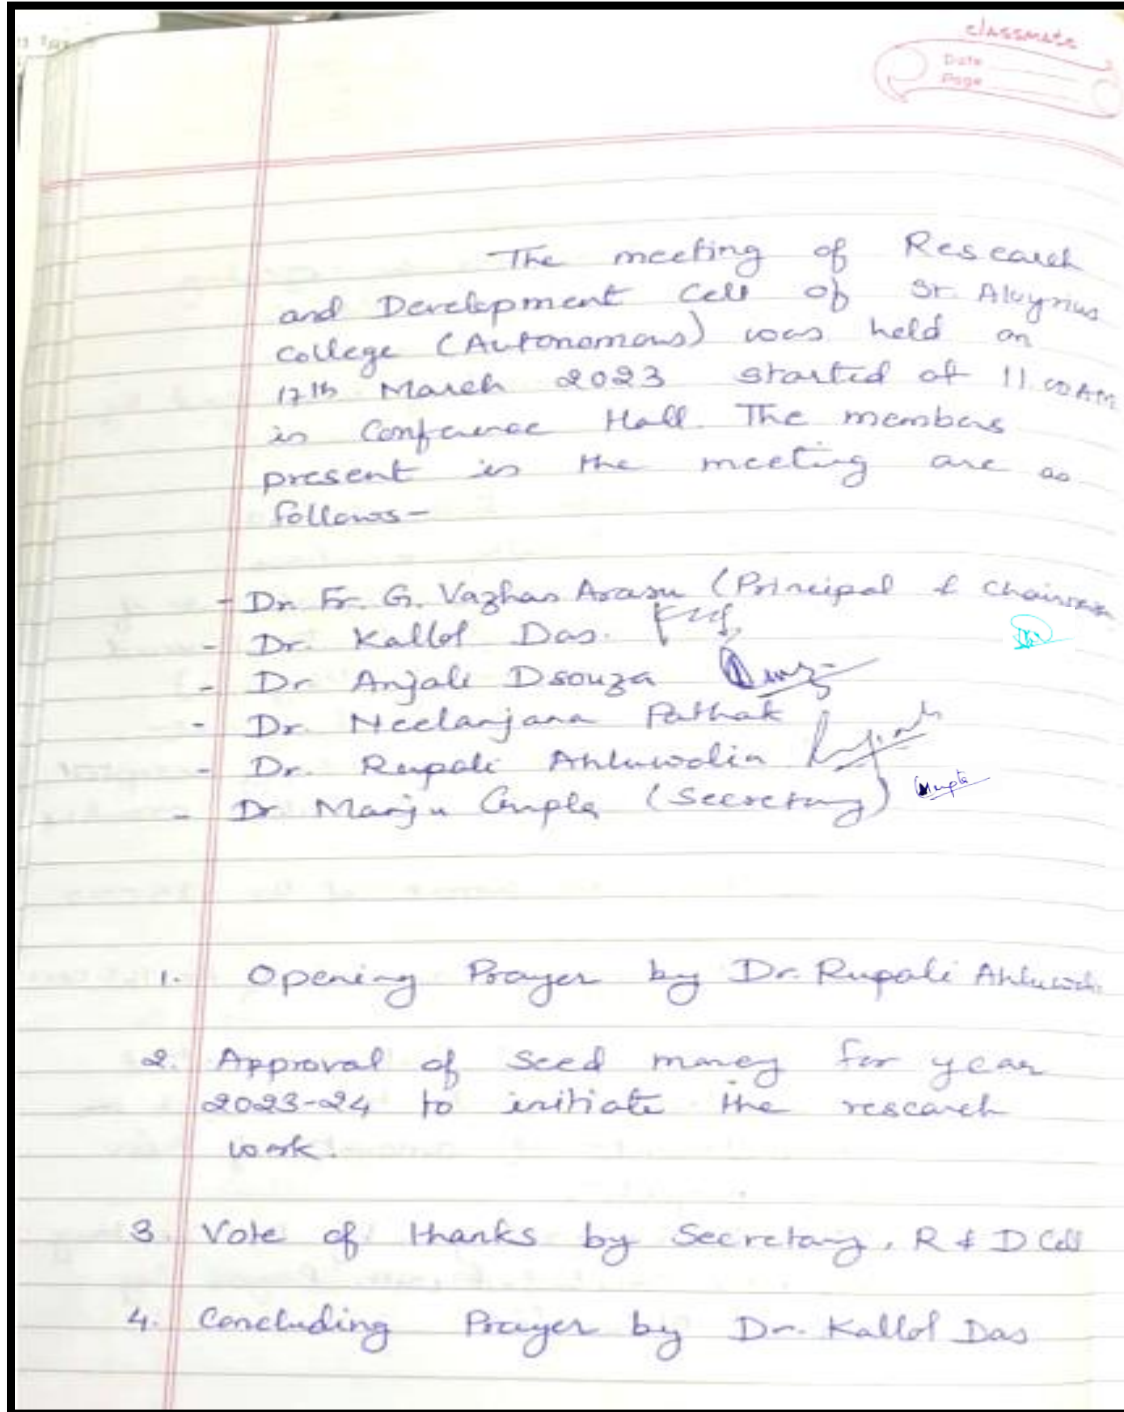 classmate
Date
Page
The meeting of Research
and Development Cell of St. Aloysius
College (Autonomous) was held on
17th March 2023 started at 11.00AM
in Conference Hall. The members
present in the meeting are as
follows-
- Dr. Fr. G. Vazhan Arasu (Principal & Chairman
- Dr. Kallol Das.
- Dr. Anjali Dsouza
- Dr. Neelanjana Pathak
- Dr. Rupali Ahluwalia
- Dr. Manju Gupta (Secretary) Gupta
1. Opening Prayer by Dr. Rupali Ahluwalia
2. Approval of seed money for year
2023-24 to initiate the research
work.
3. Vote of thanks by Secretary, R & D Cell
4. Concluding Prayer by Dr. Kallol Das